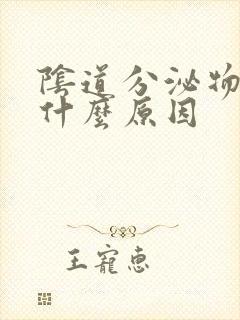 陰道分泌物
什麼原因
王寵惠